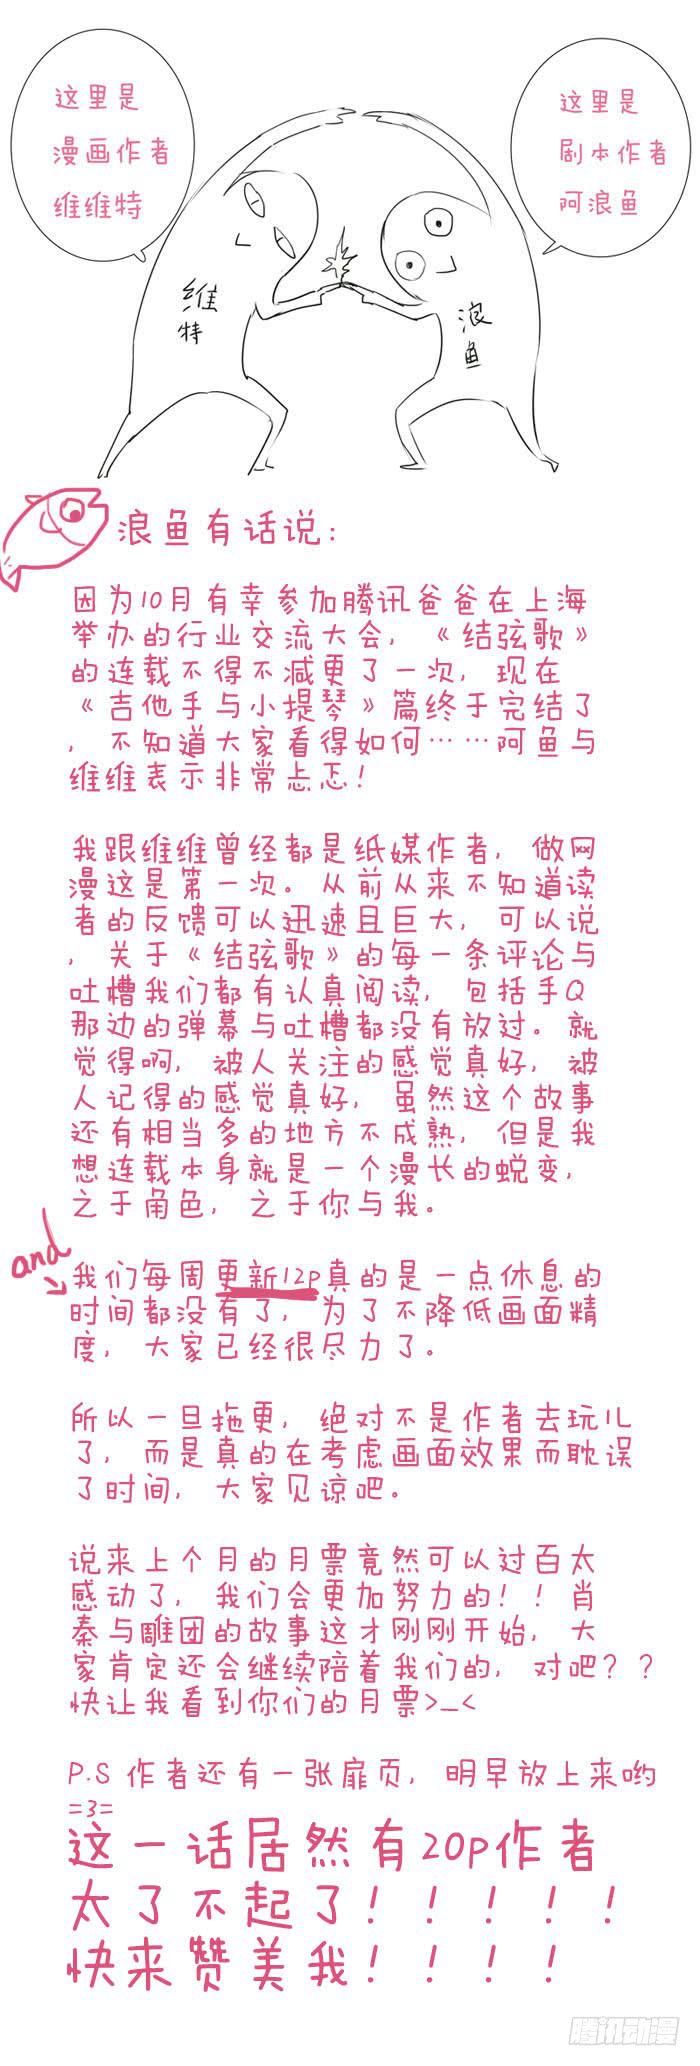 这里是
漫画作者
维维特
这里是
剧本作者
阿浪鱼
维
特
浪
鱼
浪鱼有话说:
因为10月有幸参加腾讯爸爸在上海
举办的行业交流大会,《结弦歌》
的连载不得不减更了一次,现在
《吉他手与小提琴》篇终于完结了
,不知道大家看得如何……阿鱼与
维维表示非常忐忑!
我跟维维曾经都是纸媒作者,做网
漫这是第一次。从前从来不知道读
者的反馈可以迅速且巨大,可以说
,关于《结弦歌》的每一条评论与
吐槽我们都有认真阅读,包括手Q
那边的弹幕与吐槽都没有放过。就
觉得啊,被人关注的感觉真好,被
人记得的感觉真好,虽然这个故事
还有相当多的地方不成熟,但是我
想连载本身就是一个漫长的蜕变,
之于角色,之于你与我。
and
我们每周更新12p真的是一点休息的
时间都没有了,为了不降低画面精
度,大家已经很尽力了。
所以一旦拖更,绝对不是作者去玩儿
了,而是真的在考虑画面效果而耽误
了时间,大家见谅吧。
说来上个月的月票竟然可以过百太
感动了,我们会更加努力的!!肖
秦与雕团的故事这才刚刚开始,大
家肯定还会继续陪着我们的,对吧??
快让我看到你们的月票>_<
P.S 作者还有一张扉页,明早放上来哟
=3=
这一话居然有20p作者
太了不起了!!!!!
快来赞美我!!!!
腾讯动漫